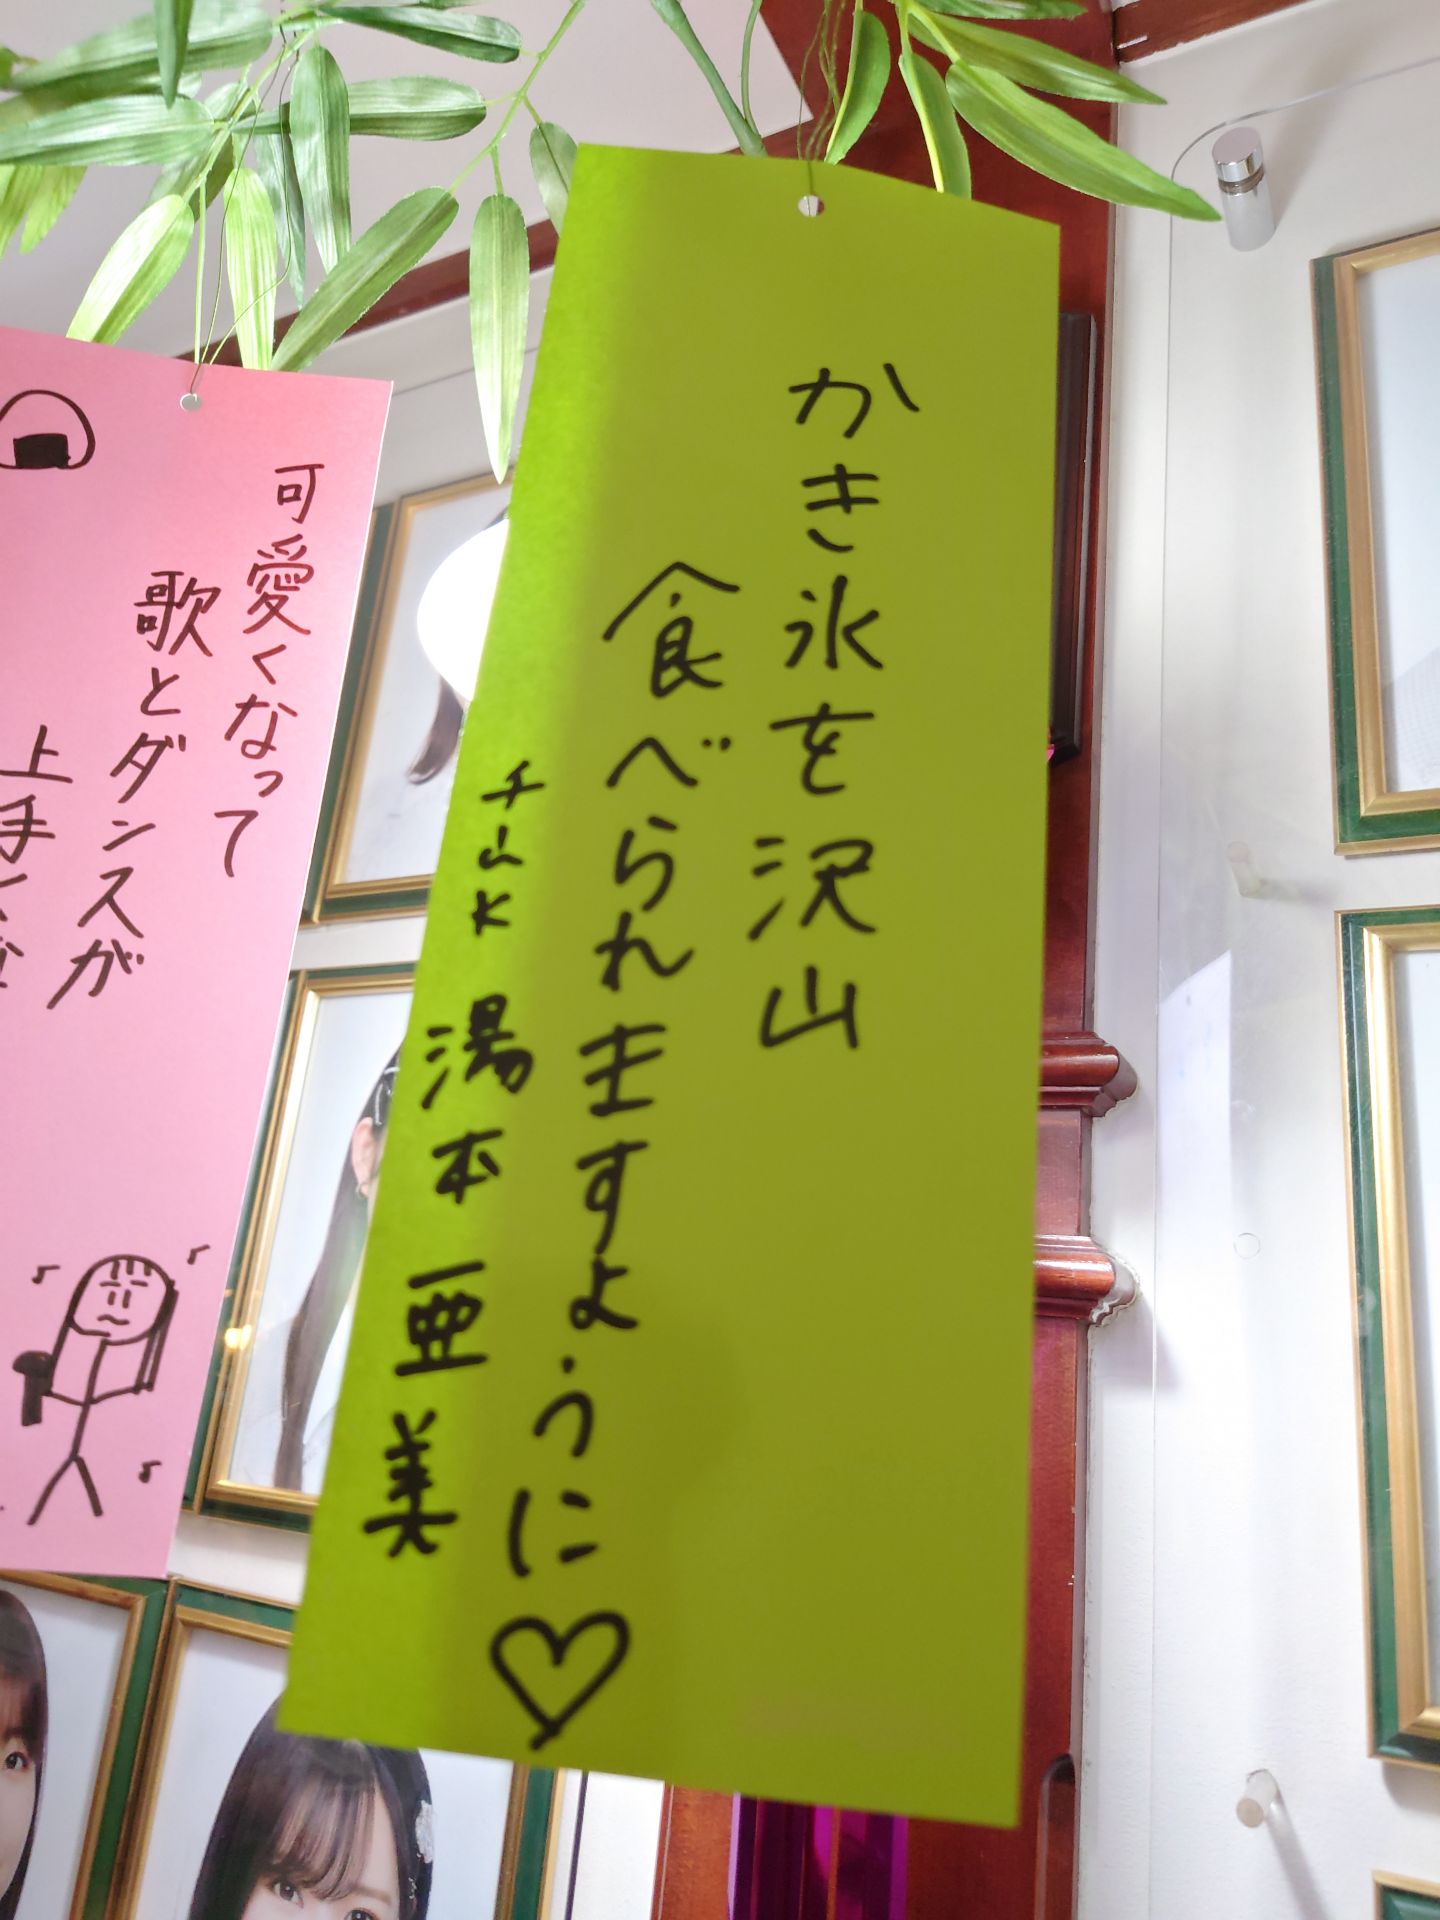 かき氷を沢山
食べられますように♡
チームK 湯本亜美
可愛くなって
歌とダンスが
上手くな